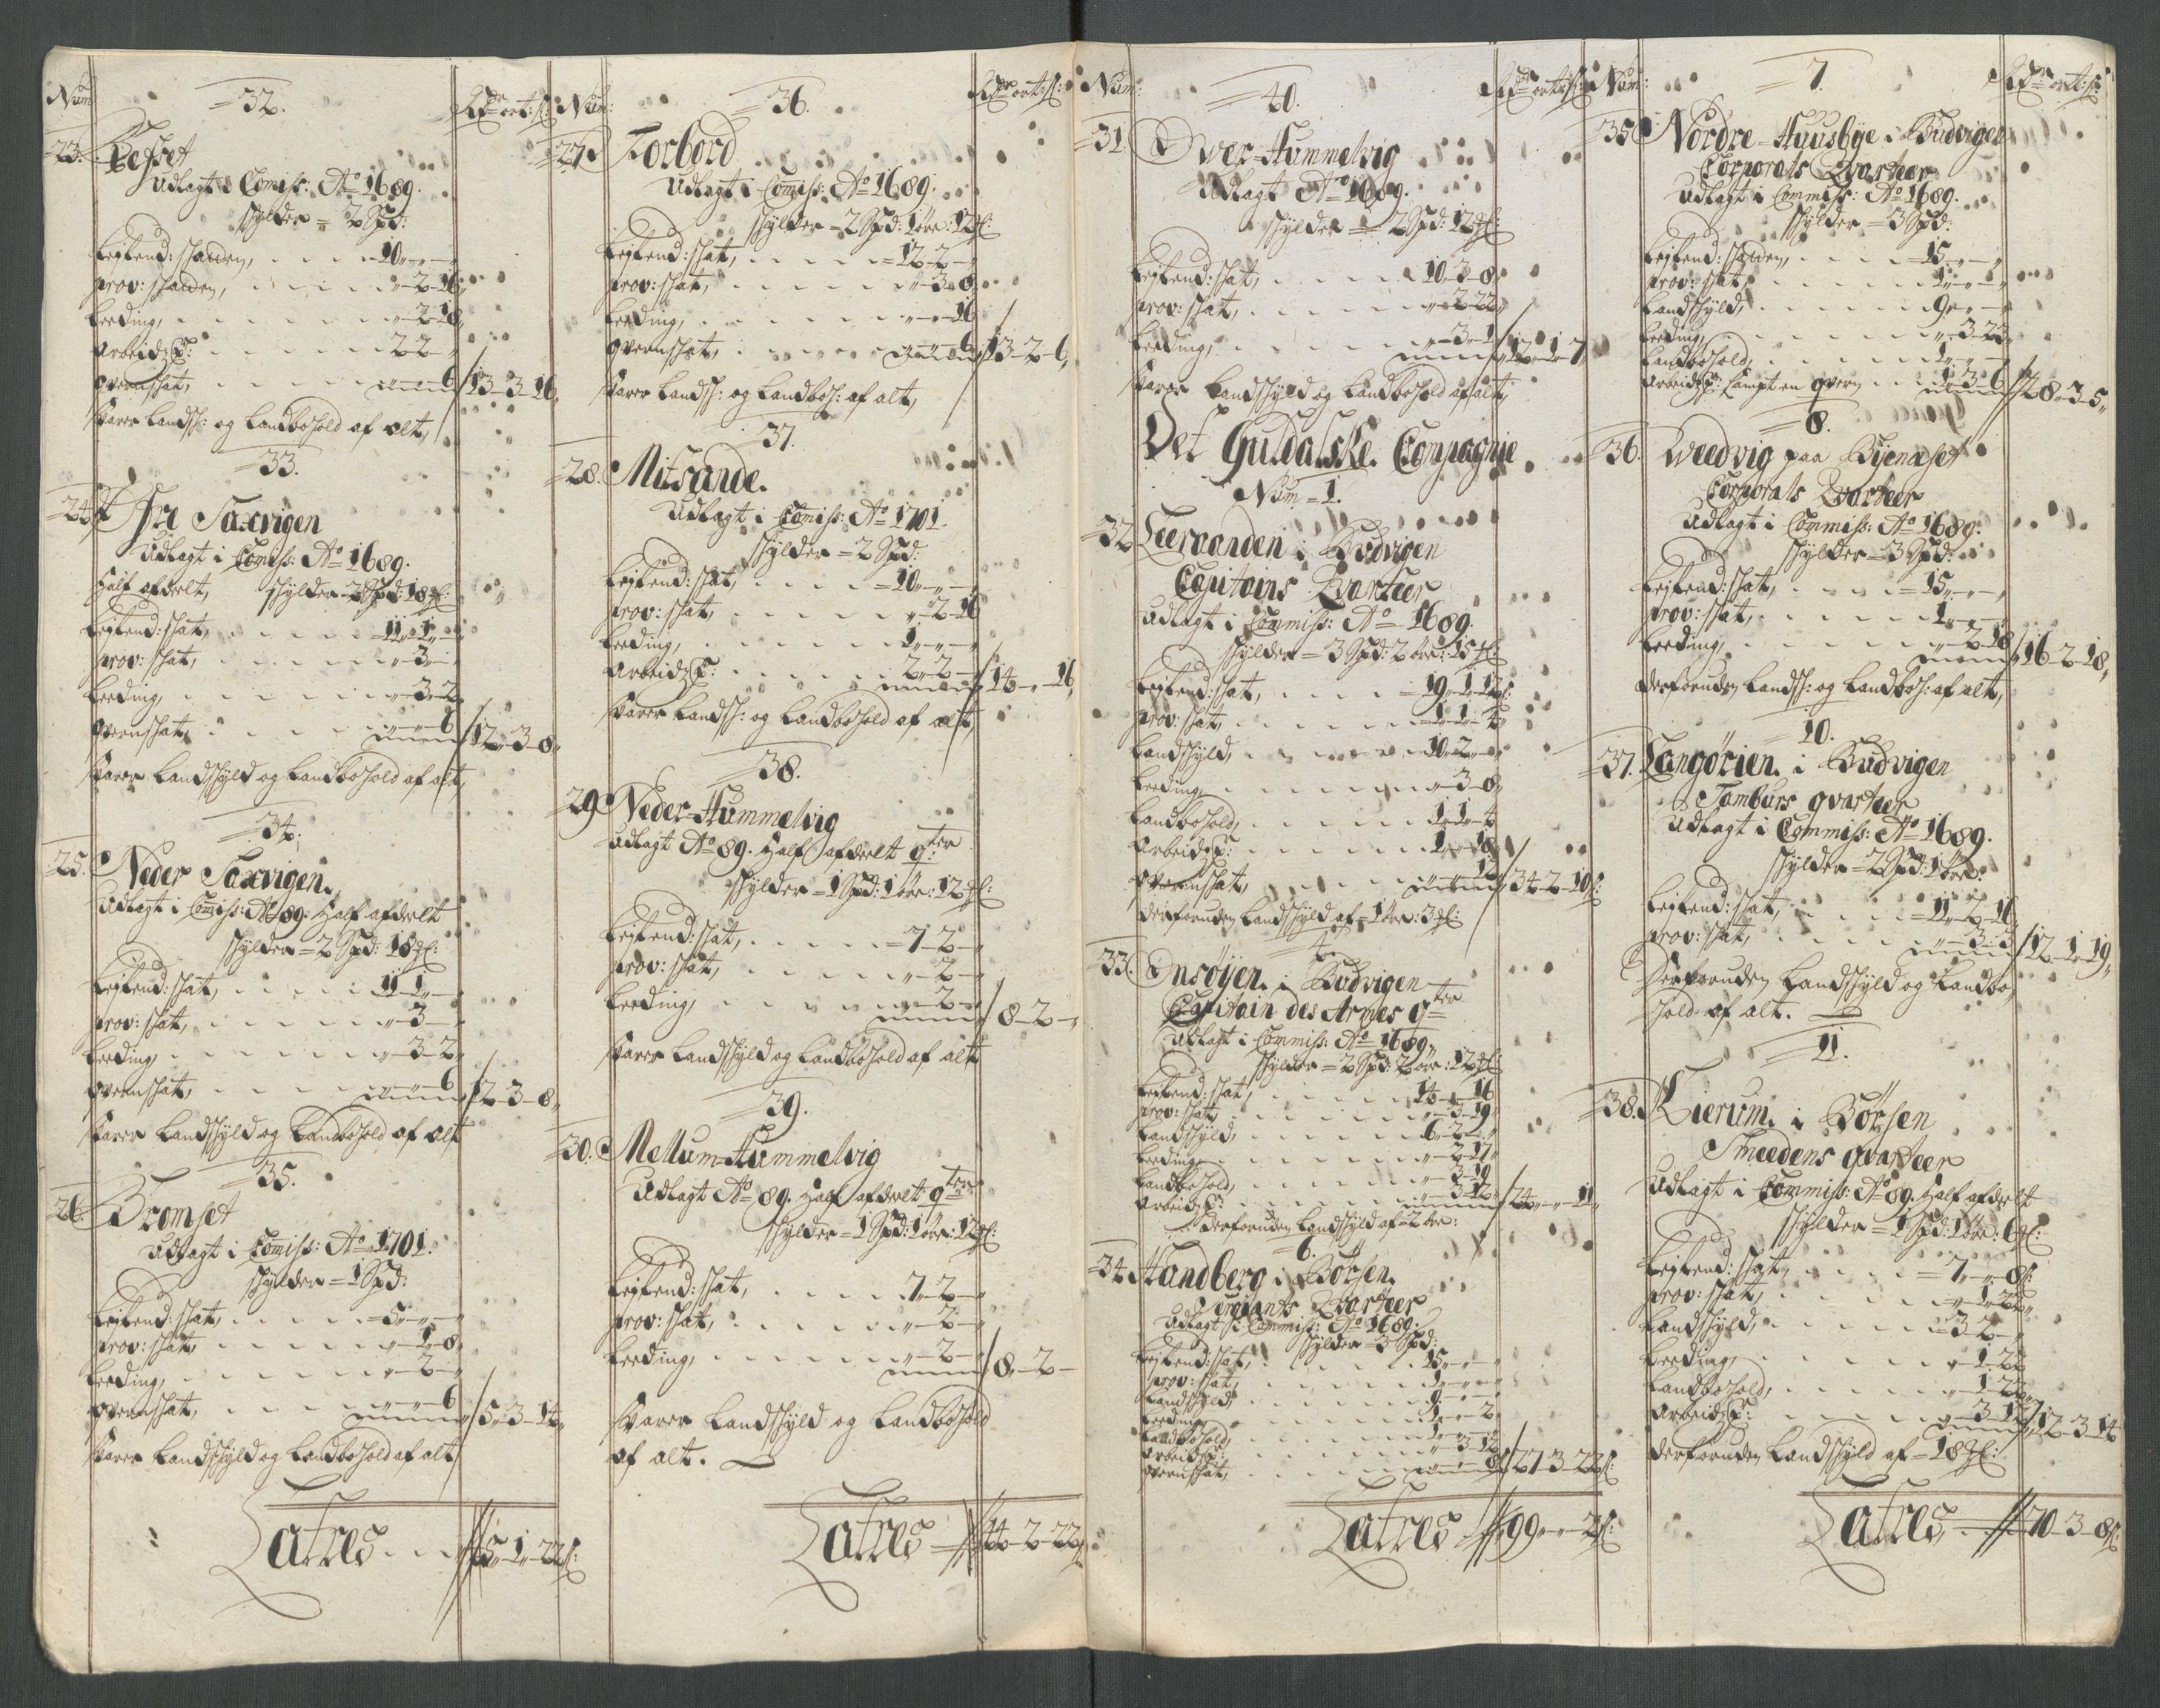 Num
32.
Rdr ort: ß:
23.
Udlagt i Comiss: Ao 1689.
schylder = 2 Spd:
Leylend: schatten, 10 „ - „ -
prov: schatten, „ - 2 - 16
Leeding, „ - 2 - 18
Arbeidz P: 2 2 - „
qvernschat, „ - „ - 6 / 13 - 3 - 16
Svarer Landsch: og Landbohold af alt,
33.
24
Øfre Saxvigen
Udlagt i Comiss: Ao 1689.
Half afdeelt, schylder 2 Spd: 18 ℳ:
Leylend: schat, 11 - 1 -
prov: schat, „ - 3 - „
Leeding, „ - 3 - 2
qvernschat, „ - „ - 6 / 12 - 3 - 8
Svarer Landschyld og Landbohold af alt,
34.
25.
Neder Saxvigen.
Udlagt i Comiss: Ao 89. Half afdeelt
schylder = 2 Spd: 18 ℳ:
Leylend: schat, 11 1 -
prov: schat, „ - 3 - „
Leeding, „ - 3 - 2
qvernschat, „ - „ - 6 / 12 - 3 - 8
Svarer Landschyld og Landbohold af alt
35.
26.
Bromset
Udlagt i Comiss: Ao 1701.
schylder = 1 Spd:
Leylend: schat, = 5 „ - „ -
prov: schat, „ - 1 - 8
Leeding, „ - 2 - „
qvernschat, „ - „ - 6 / 5 - 3 - 14
Svarer Landschyld og Landbohold af alt
Latres 45 - 1 - 22 ß:
Num:
36.
Rdr ort: ß:
27
Torbord
Udlagt i Comiss: Ao 1689.
schylder = 2 Spd: 1 øre: 12 ℳ:
Leylend: schat, = 12 - 2 -
prov: schat, „ - 3 - 8
Leeding, „ - „ - 16
qvernschat, „ - „ - 6 / 13 - 2 - 6
Svarer Landsch: og Landboh: af alt,
37.
28.
Mitsande.
Udlagt i Comiss: Ao 1701.
schylder = 2 Spd:
Leylend: schat, = 10 „ - „
prov: schat, „ - 2 - 16
Leeding, 1 - „ - „
Arbeidz P: 2 - 2 - / 14 - „ - 16
Svarer Landsch: og Landbohold af alt,
38.
29
Neder-Hummelvig
Udlagt Ao 89. Half afdeelt qter
schylder = 1 Spd: 1 øre: 12 ℳ:
Leylend: schat, = 7 - 2 - „
prov: schat, „ - 2 - „
Leeding, „ - 2 - / 8 - 2 - „
Svarer Landschyld og Landbohold af alt
39.
30.
Mellum-Hummelvig
Udlagt Ao 89. Half afdeelt qter
schylder = 1 Spd: 1 øre: 12 ℳ:
Leylend: schat, 7 - 2 -
prov: schat, „ - 2 -
Leeding, „ - 2 - / 8 - 2 -
Svarer Landschyld og Landbohold
af alt.
Latres 44 - 2 - 22
Num:
40.
Rdr ort: ß:
31
Over-Hummelvig
Udlagt Ao 1689.
schylder = 2 Spd: 12 ℳ:
Leylend: schat, 10 - 3 - 8
prov: schat, „ - 2 - 22
Leeding, „ - 3 - 1 / 12 - 1 - 7
Svarer Landschyld og Landbohold af alt,
Det Guldalske Compagnie
Num = 1.
32
Leeraanden i Budvigen
Capitains Qvarteer
Udlagt i Commiss: Ao 1689.
schylder = 3 Spd: 2 øre: 15 ℳ:
Leylend: schat, 19 - 1 - 12 ß:
prov: schat, 1 - 1 - 4
Landschyld, 10 - 2 -
Leeding, „ - 3 - 8
Landbohold, 1 - 1 - 4
Arbeidz P: 1 - „ - 18
qvernschat, „ - „ - 12 / 34 - 2 - 10 ß:
Derforuden Landschyld af = 1 øre: 3 ℳ:
4.
33.
Onsøyen i Budvigen
Capitain des Armes qter
Udlagt i Commiss: Ao 1689.
schylder = 2 Spd: 2 øre: 12 ℳ:
Leylend: schat, 14 - „ - 16
prov: schat, „ - 3 - 19
Landschyld, 6 - 2 -
Leeding, „ - 2 - 17
Landbohold, „ - 3 - 19
Arbeidz P: „ - 3 - 12 / 24 - „ - 11
Derforuden Landschyld af = 2 øre:
6.
34
Handberg i Børsen.
Sergiants Qvarteer
Udlagt i Commiss: Ao 1689.
schylder = 3 Spd:
Leylend: schat, 15 - „ - „
prov: schat, 1 - „ - „
Landschyld, 9 - „ - „
Leeding, 1 - „ - 2
Landbohold, 1 - „ - „
Arbeidz P: „ - 3 - 12
qvernschat, „ - „ - 8 / 27 - 3 - 22 ß:
Latres 99 - „ - 2 ß:
Num:
7.
Rdr ort: ß:
35
Nordre-Huusbye i Budvigen
Corporals Qvarteer
Udlagt i Commiss: Ao 1689.
schylder = 3 Spd:
Leylend: schatten, = 15 „ - „
prov: schat, 1 - „ - „
Landschyld, 9 - „ -
Leeding, „ - 3 - 23
Landbohold, 1 - „ - „
Arbeidz P: sampt en qvern, 1 - 3 - 6 / 28 - 3 - 5
8.
36.
Weedvig paa Byenæset
Corporals Qvarteer
Udlagt i Commiss: Ao 1689.
schylder = 3 Spd:
Leylend: schat, = 15 „ - „
prov: schat, 1 - „ -
Leeding, „ - 2 - 18 / 16 - 2 - 18
Derforuden Landsch: og Landboh: af alt,
10.
37.
Langørien i Budvigen
Tamburs qvarteer
Udlagt i Commiss: Ao 1689.
schylder = 2 Spd: 1 øre:
Leylend: schat, = 11 - 2 - 16
prov: schat, „ - 3 - 3 / 12 - 1 - 19
Derforuden Landschyld og Landbo-
hold af alt.
11.
38.
Kierum i Børsen
Smeedens qvarteer
Udlagt i Commiss: Ao 89. Half afdeelt
schylder = 1 Spd: 1 øre: 6 ℳ:
Leylend: schat, = 7 - „ - 8 ß:
prov: schat, „ - 1 - 22
Landschyld, = 3 - 2 -
Leeding, „ - 1 - 23
Landbohold, „ - 1 - 22
Arbeidz P: „ - 3 - 17 / 12 - 3 - 14
Derforuden Landschyld af = 18 ℳ:
Latres 70 - 3 - 8 ß